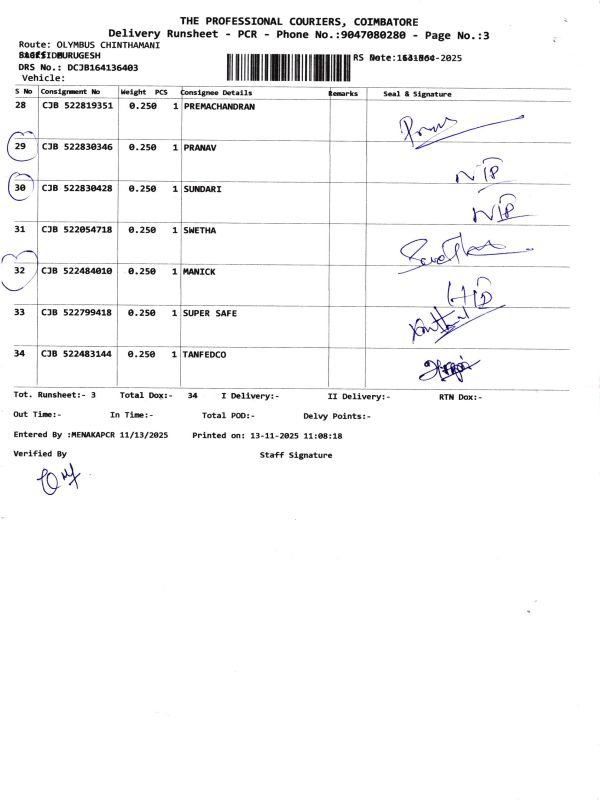 THE PROFESSIONAL COURIERS, COIMBATORE
Delivery Runsheet - PCR - Phone No.:9047080280 - Page No.:3
Route: OLYMBUS CHINTHAMANI
MURUGESH
RS Note:
-2025
DRS No.: DCJB164136403
Vehicle:
S No Consignment No Weight PCS Consignee Details Remarks Seal & Signature
28 CJB 522819351 0.250 1 PREMACHANDRAN
29 CJB 522830346 0.250 1 PRANAV
30 CJB 522830428 0.250 1 SUNDARI
31 CJB 522054718 0.250 1 SWETHA
32 CJB 522484010 0.250 1 MANICK
33 CJB 522799418 0.250 1 SUPER SAFE
34 CJB 522483144 0.250 1 TANFEDCO
Tot. Runsheet:- 3 Total Dox:- 34 I Delivery:- II Delivery:- RTN Dox:-
Out Time:- In Time:- Total POD:- Delvy Points:-
Entered By :MENAKAPCR 11/13/2025 Printed on: 13-11-2025 11:08:18
Verified By Staff Signature